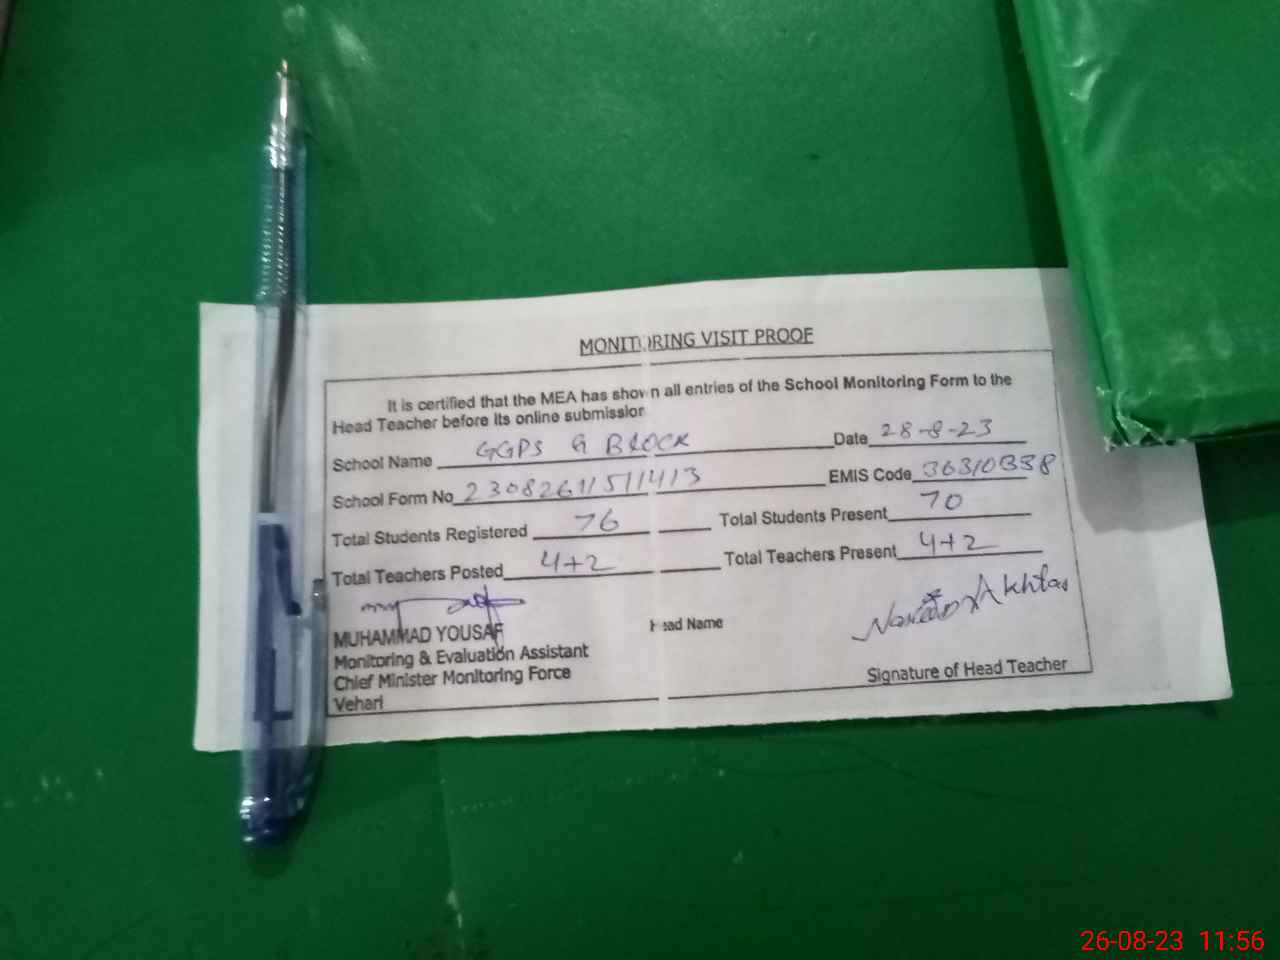 MONITORING VISIT PROOF
It is certified that the MEA has shown all entries of the School Monitoring Form to the
Head Teacher before its online submission
School Name GGPS G BLOCK Date 28-8-23
School Form No 23082611511413 EMIS Code 36310338
Total Students Registered 76 Total Students Present 70
Total Teachers Posted 4+2 Total Teachers Present 4+2
MUHAMMAD YOUSAF Head Name Akhtar
Monitoring & Evaluation Assistant
Chief Minister Monitoring Force Signature of Head Teacher
Vehari
26-08-23 11:56